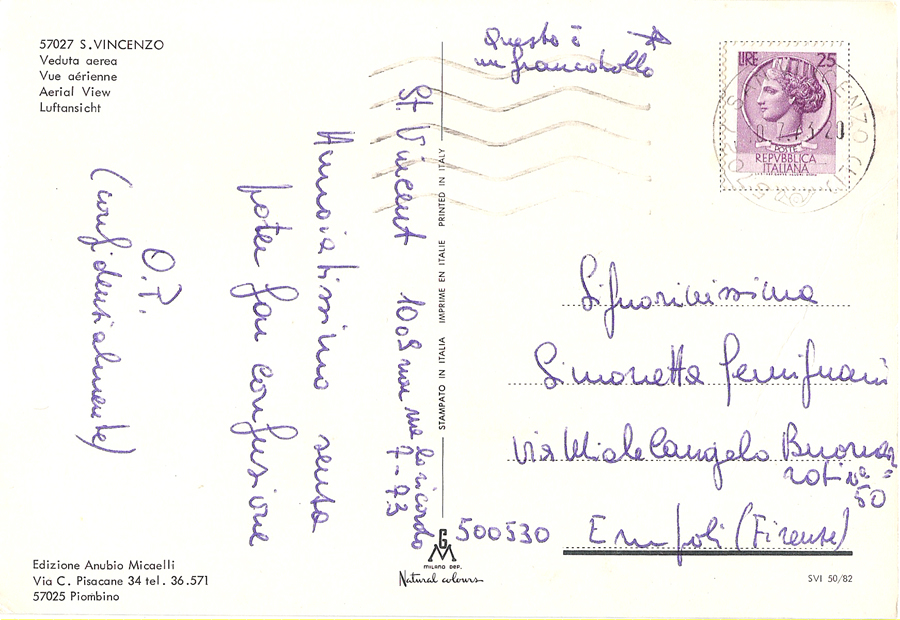 57027 S. VINCENZO
Veduta aerea
Vue aérienne
Aerial View
Luftansicht
Questo è
un francobollo
LIRE 25
POSTE
REPVBBLICA
ITALIANA
St. Vincent 10 o 9 non me lo ricordo
7-73
Annoiatissimo senza
poter far confusione
O.P.
(confidentialmente)
STAMPATO IN ITALIA IMPRIME EN ITALIE PRINTED IN ITALY
Signorinissima
Simonetta Gemignani
via Michelangelo Buonar
roti n°=
50
500530 Empoli (Firenze)
GM
MILANO DEP.
Natural colours
Edizione Anubio Micaelli
Via C. Pisacane 34 tel. 36.571
57025 Piombino
SVI 50/82